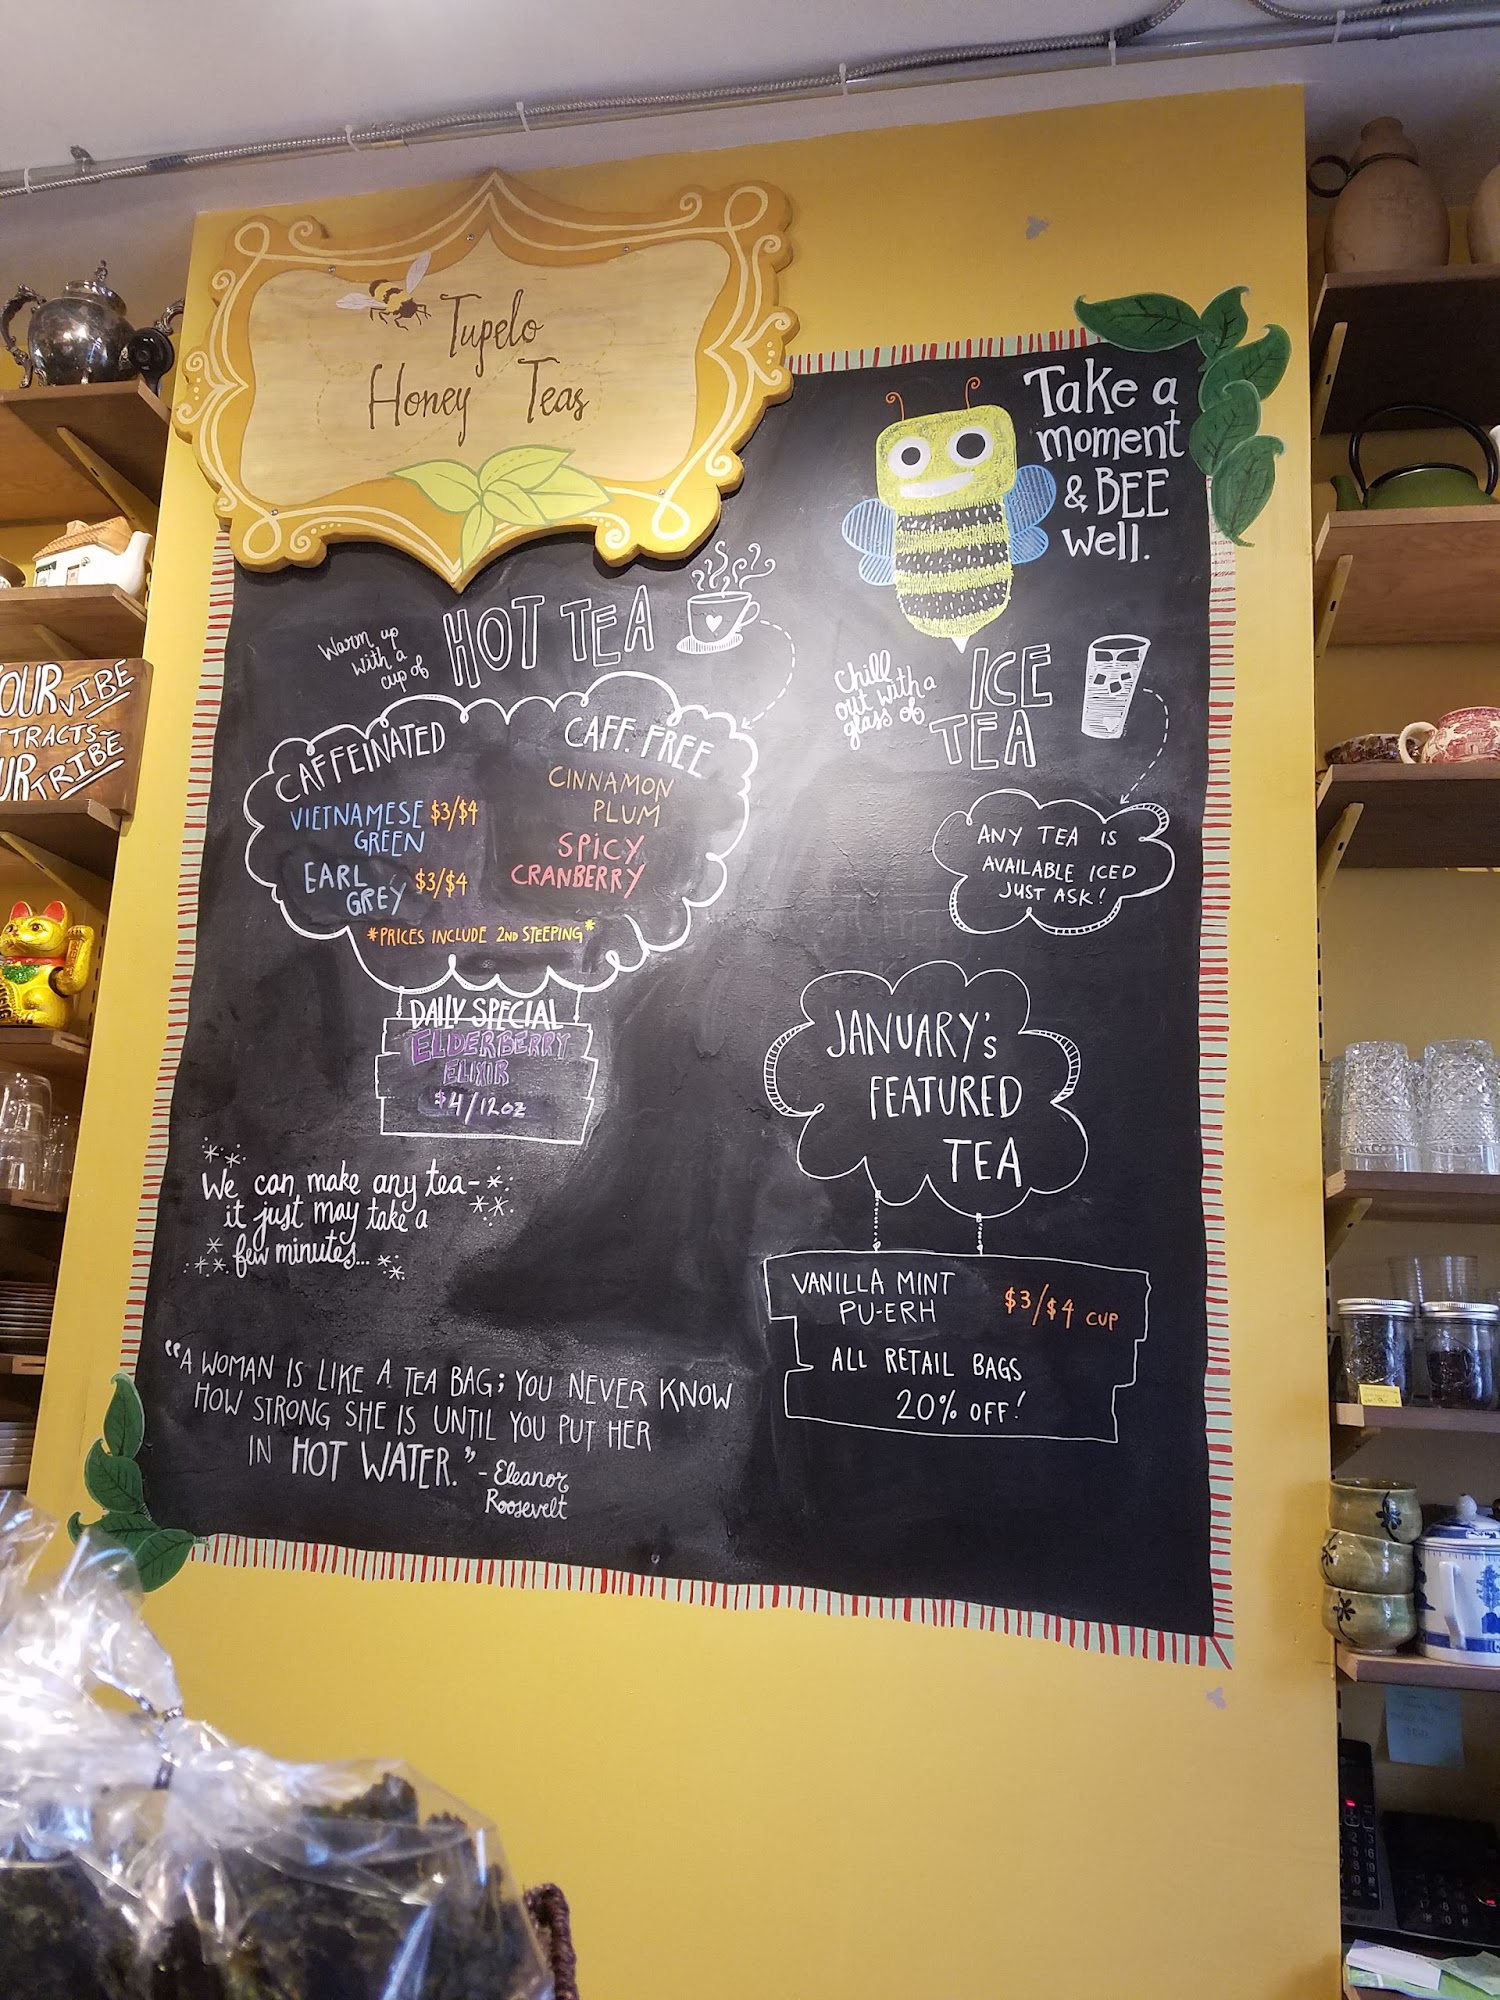 Tupelo
Honey Teas
Take a
moment
& BEE
well.
Warm up
with a
cup of
HOT TEA
CAFFEINATED
VIETNAMESE $3/$4
GREEN
EARL $3/$4
GREY
CAFF. FREE
CINNAMON
PLUM
SPICY
CRANBERRY
*PRICES INCLUDE 2ND STEEPING*
DAILY SPECIAL
ELDERBERRY
ELIXIR
$4/12oz
We can make any tea-
it just may take a
few minutes...
"A WOMAN IS LIKE A TEA BAG; YOU NEVER KNOW
HOW STRONG SHE IS UNTIL YOU PUT HER
IN HOT WATER."
- Eleanor
Roosevelt
Chill
out with a
glass of
ICE
TEA
ANY TEA IS
AVAILABLE ICED
JUST ASK!
JANUARY's
FEATURED
TEA
VANILLA MINT
PU-ERH
$3/$4 CUP
ALL RETAIL BAGS
20% OFF!
YOUR VIBE
ATTRACTS
YOUR TRIBE